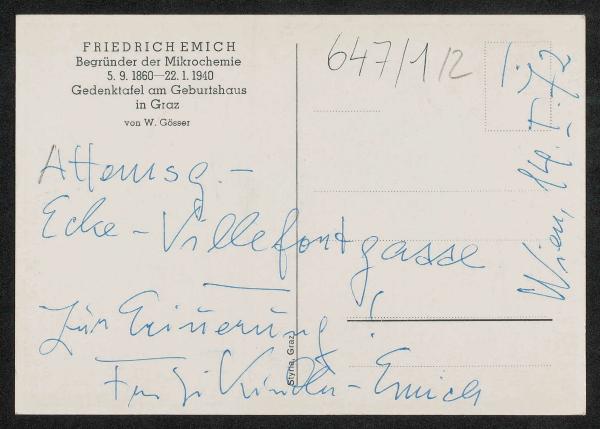 FRIEDRICH EMICH
Begründer der Mikrochemie
5. 9. 1860—22. 1. 1940
Gedenktafel am Geburtshaus
in Graz
von W. Gösser
647/1/2
Attemsg. -
Ecke - Villefortgasse
Zur Erinnerung!
Emich
Styria, Graz
Wien, 14.